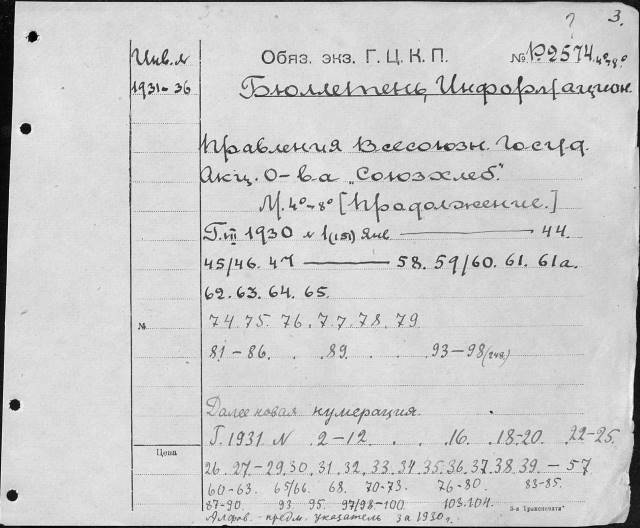 ? 3.
Инв. №
1931-36
Обяз. экз. Г. Ц. К. П. № Р2574 4°-8°
Бюллетень, Информацион
Правления Всесоюзн. Госуд.
Акц. О-ва "Союзхлеб".
М. 4°-8° [Продолжение.]
Г. VII 1930 № 1(151) Янв ——— 44.
45/46. 47 ——— 58. 59/60. 61. 61а.
62. 63. 64. 65.
№
74. 75. 76. 77. 78. 79.
81-86. . 89. . 93-98(248)
Далее новая нумерация.
Г. 1931 № . 2-12 . . 16. 18-20. 22-25.
Цена
26. 27-29. 30. 31. 32. 33. 34. 35. 36. 37. 38. 39. - 57
60-63. 65/66. 68. 70-73. 76-80. 83-85.
87-90. 93 95. 97/98-100 103.104.
Алфав. - предм. указатель за 1930 г.